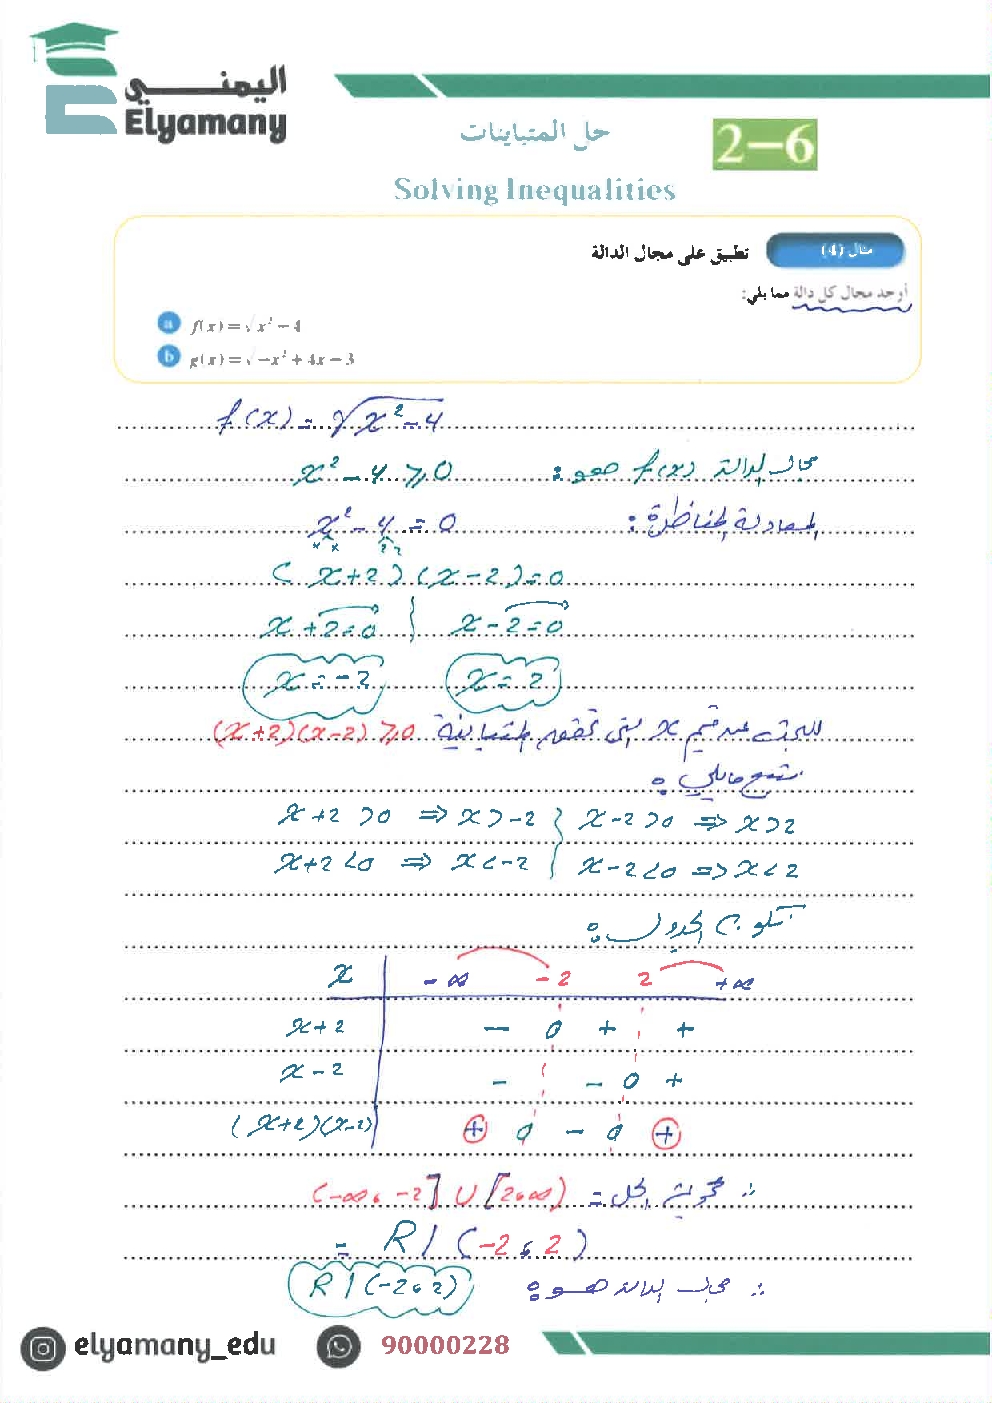 اليمني
Elyamany
حل المتباينات
2-6
Solving Inequalities
مثال (4) تطبيق على مجال الدالة
أوجد مجال كل دالة مما يلي:
a f(x) = √x² − 4
b g(x) = √−x² + 4x − 3
f(x) = √x² − 4
مجال الدالة f(x) هو : x² − 4 ⩾ 0
المعادلة المناظرة : x² − 4 = 0
x x 2 2
(x+2)(x−2) = 0
x+2=0 x−2=0
x = −2 x = 2
للبحث عن قيم x التي تحقق المتباينة (x+2)(x−2) ⩾ 0
نتبع مايلي :
x+2 > 0 ⇒ x > −2 x−2 > 0 ⇒ x > 2
x+2 < 0 ⇒ x < −2 x−2 < 0 ⇒ x < 2
نكون الجدول :
x −∞ −2 2 +∞
x+2 − 0 + +
x−2 − − 0 +
(x+2)(x−2) + 0 − 0 +
∴ مجموعة الحل = (−∞ ، −2] ∪ [2 ، ∞)
= R / (−2 ، 2)
∴ مجال الدالة هو : R / (−2 ، 2)
elyamany_edu 90000228